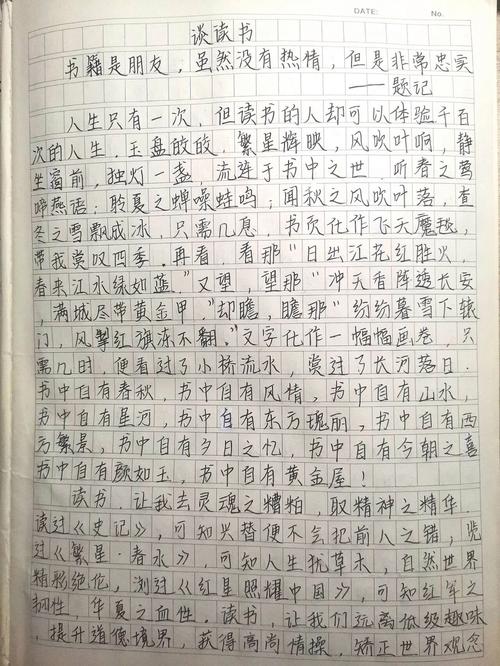 DATE:
No.
谈读书
书籍是朋友，虽然没有热情，但是非常忠实
——题记
人生只有一次，但读书的人却可以体验千百
次的人生。玉盘皎皎，繁星辉映，风吹叶响，静
坐窗前，独灯一盏，流连于书中之世。听春之莺
啼燕语；聆夏之蝉噪蛙鸣；闻秋之风吹叶落，查
冬之雪飘成冰，只需几息，书页化作飞天魔毯，
带我赏叹四季。再看，看那“日出江花红胜火，
春来江水绿如蓝。”又望，望那“冲天香阵透长安
，满城尽带黄金甲。”却瞻，瞻那“纷纷暮雪下辕
门，风掣红旗冻不翻。”文字化作一幅幅画卷，只
需几时，便看过了小桥流水，赏过了长河落日。
书中自有春秋，书中自有风情，书中自有山水，
书中自有星河，书中自有东方瑰丽，书中自有西
方繁景，书中自有夕日之忆，书中自有今朝之喜
书中自有颜如玉，书中自有黄金屋！
读书，让我去灵魂之糟粕，取精神之精华。
读过《史记》，可知兴替便不会把前人之错，览
过《繁星·春水》，可知人生犹草木，自然世界
精彩绝伦，浏过《红星照耀中国》，可知红军之
韧性，华夏之血性。读书，让我们远离低级趣味
，提升道德境界，获得高尚情操，矫正世界观念